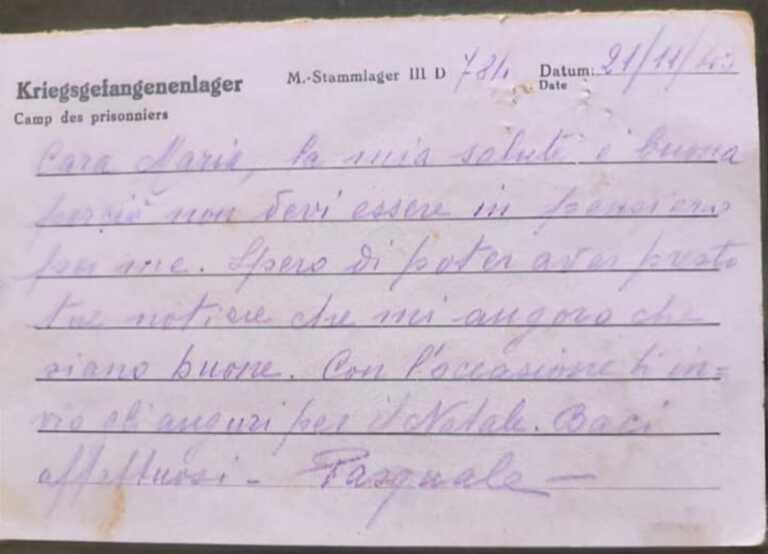 Kriegsgefangenenlager M.-Stammlager III D 784 Datum: 21/11/43
Camp des prisonniers Date
Cara Maria, la mia salute è buona
perciò non devi essere in pensiero
per me. Spero di poter aver presto
tue notizie che mi auguro che
siano buone. Con l'occasione ti in=
vio gli auguri per il Natale. Baci
affettuosi - Pasquale —